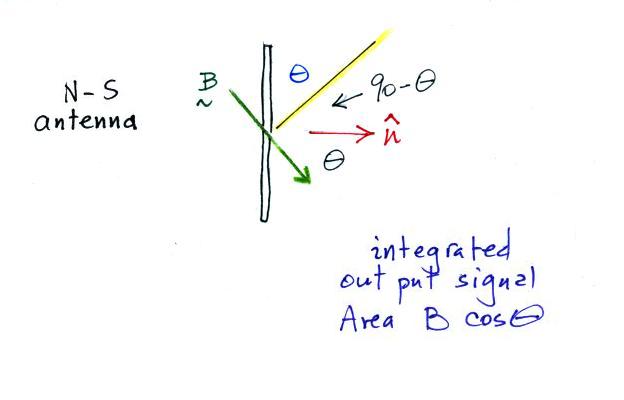 N-S
antenna
B
~
θ
90-θ
n̂
θ
integrated
output signal
Area B cosθ